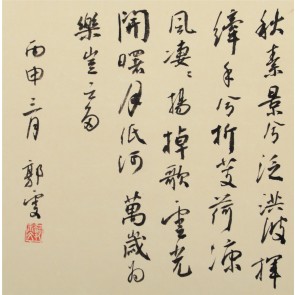 秋素景兮泛洪波揮
纖手兮折芰荷涼
風淒〻揚棹歌雲光
開曙月低河萬歲為
樂豈云多
丙申三月 郭雯